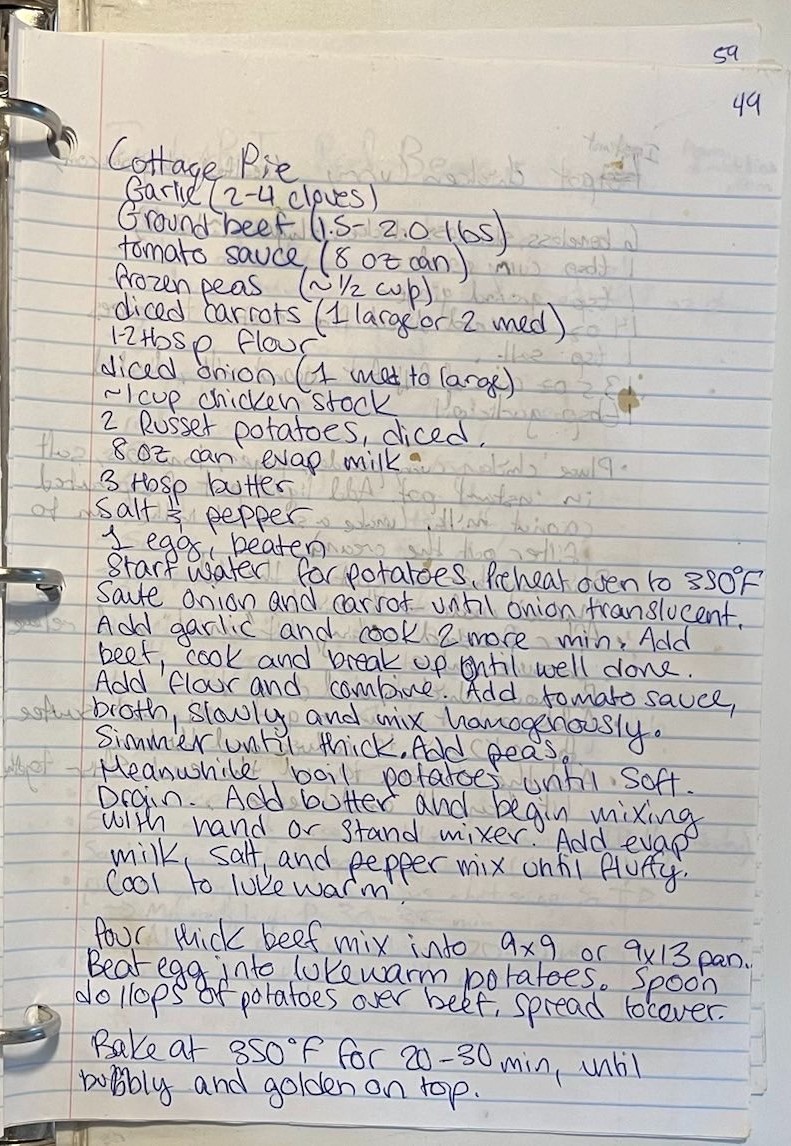 59
49
Cottage Pie
Garlic (2-4 cloves)
Ground beef (1.5-2.0 lbs)
tomato sauce (8 oz can)
frozen peas (~1/2 cup)
diced carrots (1 large or 2 med)
1-2 tbsp flour
diced onion (1 med to large)
~1 cup chicken stock
2 Russet potatoes, diced.
8 oz can evap milk
3 tbsp butter
salt & pepper
1 egg, beaten
Start water for potatoes. Preheat oven to 350°F
Saute onion and carrot until onion translucent.
Add garlic and cook 2 more min. Add
beef, cook and break up until well done.
Add flour and combine. Add tomato sauce,
broth, slowly and mix homogenously.
Simmer until thick. Add peas.
Meanwhile, boil potatoes until soft.
Drain. Add butter and begin mixing
with hand or stand mixer. Add evap
milk, salt, and pepper mix until fluffy.
Cool to lukewarm.
Pour thick beef mix into 9x9 or 9x13 pan.
Beat egg into lukewarm potatoes. Spoon
dollops of potatoes over beef, spread to cover.
Bake at 350°F for 20-30 min, until
bubbly and golden on top.